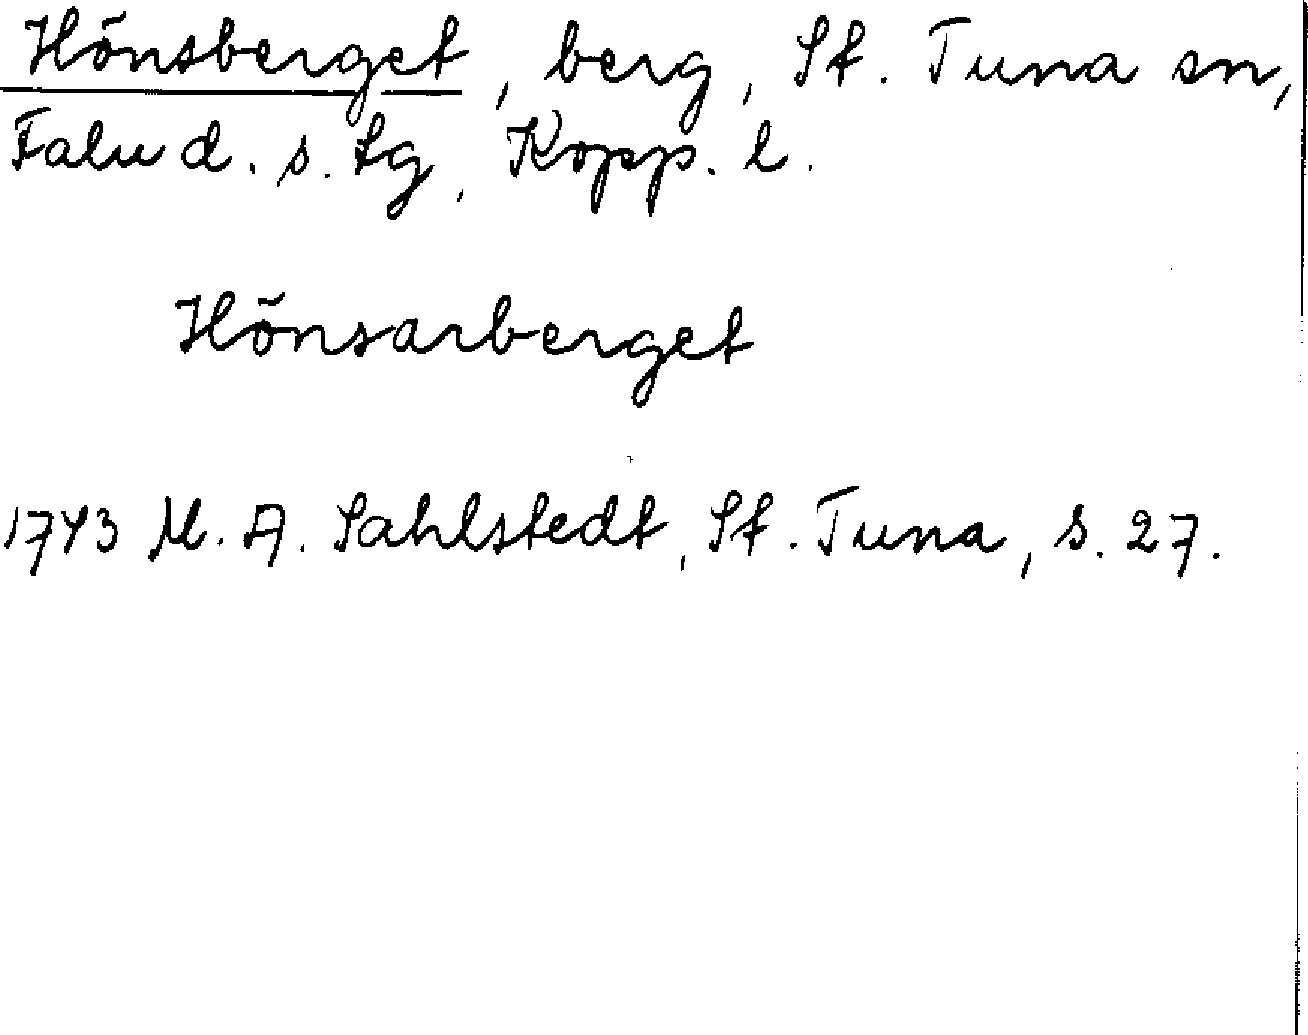 Hönsberget, berg, St. Tuna sn,
Falu d. s. tg, Kopp. l.
Hönsarberget
1743 M. A. Sahlstedt, St. Tuna, s. 27.